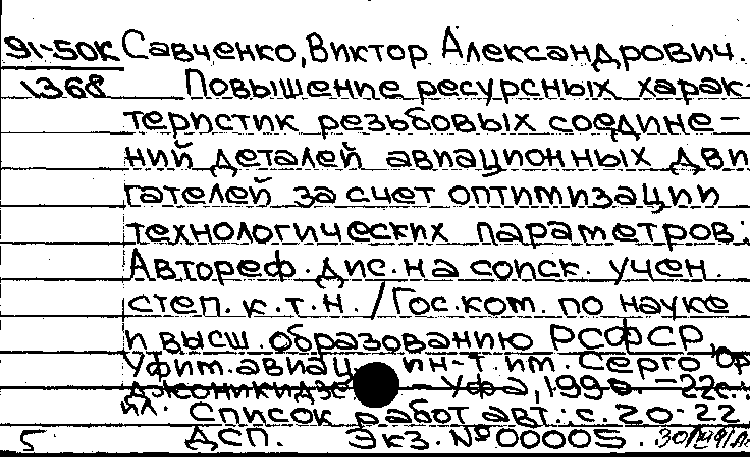 91-50К Савченко, Виктор Александрович.
1368 Повышение ресурсных харак-
теристик резьбовых соедине-
ний деталей авиационных дви
гателей за счет оптимизации
технологических параметров:
Автореф. дис. на соиск. учен.
степ. к.т.н. / Гос. ком. по науке
и высш. образованию РСФСР,
Уфим. авиац. ин-т. им. Серго Ор
джоникидзе - Уфа, 1990. - 22с.:
ил. Список работ авт.: с. 20-22
5 ДСП. Экз. № 00005.